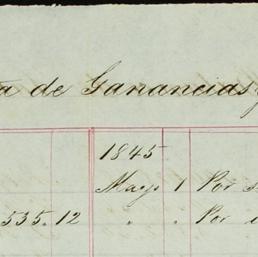 de Ganancias y
1845
Mayo 1 Por
535.12 " " Por